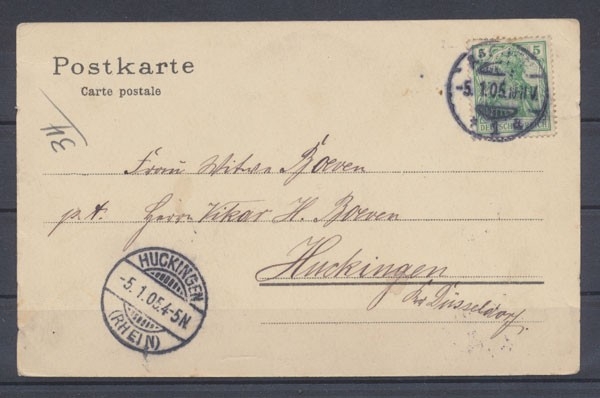 Postkarte
Carte postale
5 5
-5. 1.05.10-11V.
* 1 a
DEUTSCHES REICH
Frau Witwe Boeven
p. A. Herrn Vikar H. Boeven
Huckingen
Kr Düsseldorf
HUCKINGEN
-5. 1. 05.4-5N
(RHEIN)